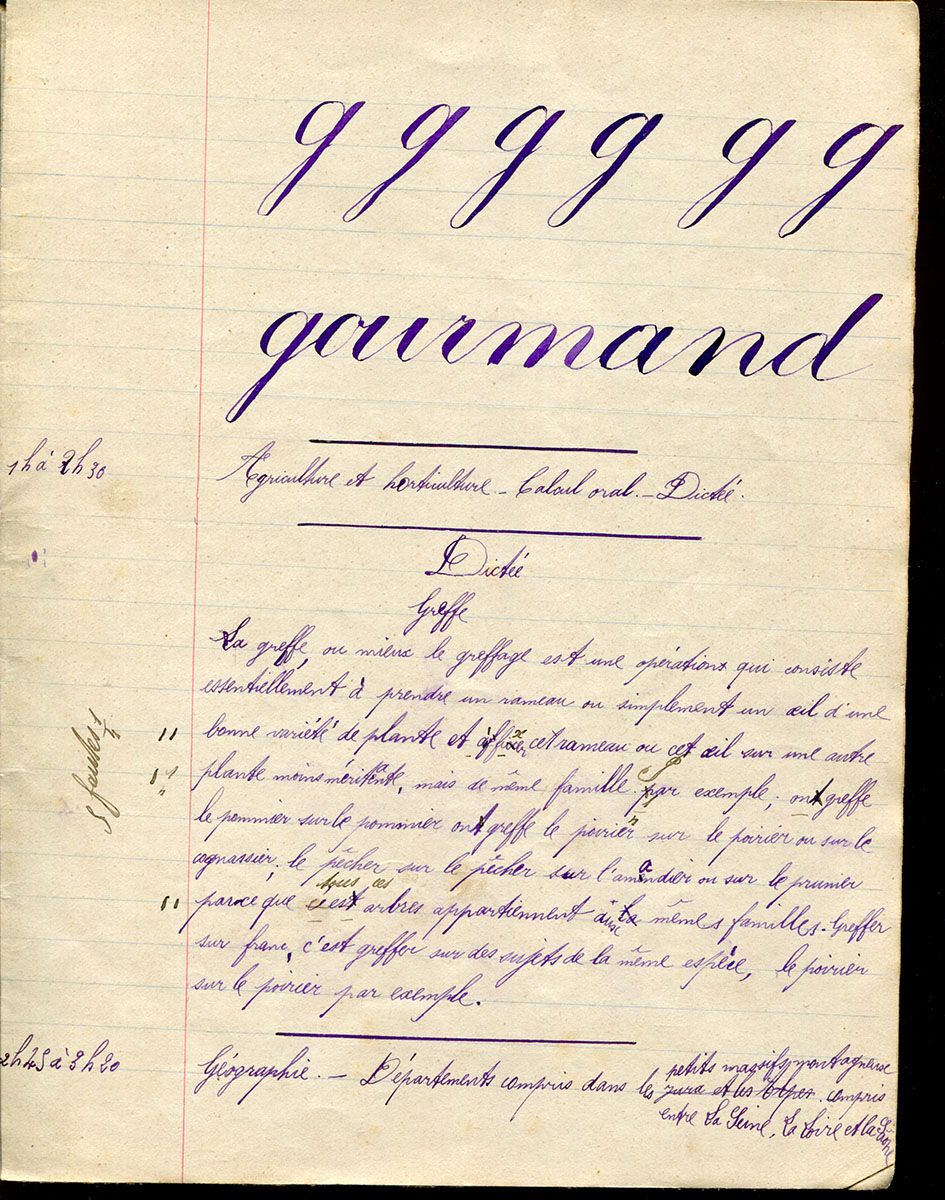 g g g g g g
gourmand
1h à 2h30
Agriculture et horticulture - Calcul oral. - Dictée.
Dictée
Greffe
La greffe, ou mieux le greffage est une opération qui consiste
essentiellement à prendre un rameau ou simplement un œil d'une
bonne variété de plante et à fixer cet rameau ou cet œil sur une autre
plante moins méritante, mais de même famille. Par exemple, ont greffe
le pommier sur le pommier ont greffe le poirier sur le poirier ou sur le
cognassier; le pêcher sur le pêcher sur l'amandier ou sur le prunier
tous ces
parce que c'est arbres appartiennent aux mêmes familles. Greffer
sur franc, c'est greffer sur des sujets de la même espèce, le poirier
sur le poirier par exemple.
5 fautes 1/2
2h45 à 3h20
Géographie. - Départements compris dans les petits massifs montagneux
jura et les Alpes. compris
entre La Seine, La Loire et la Saône